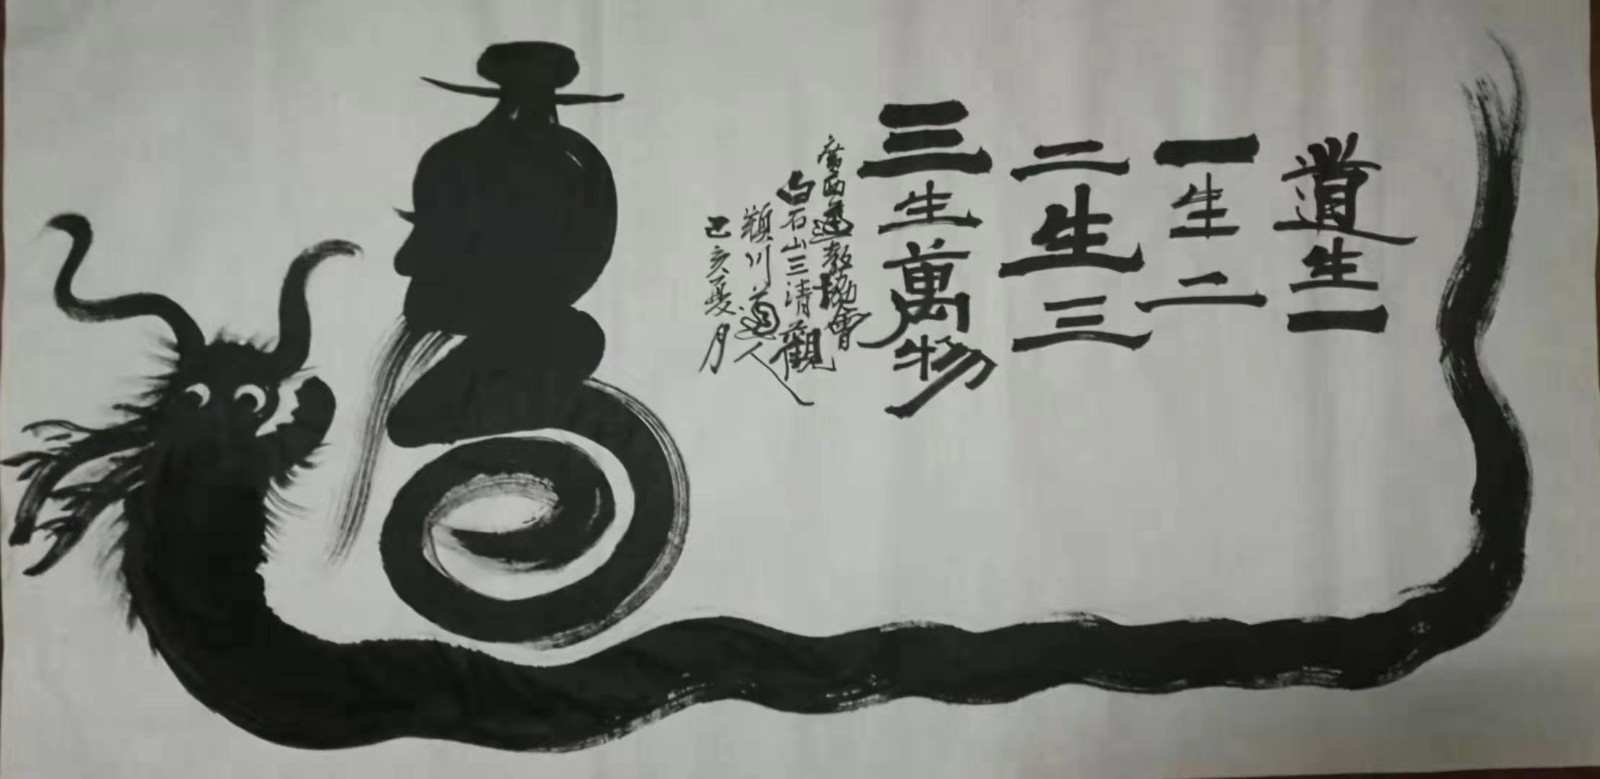 道生一
一生二
二生三
三生萬物
廣西道教協會
白石山三清觀
穎川道人
己亥夏月